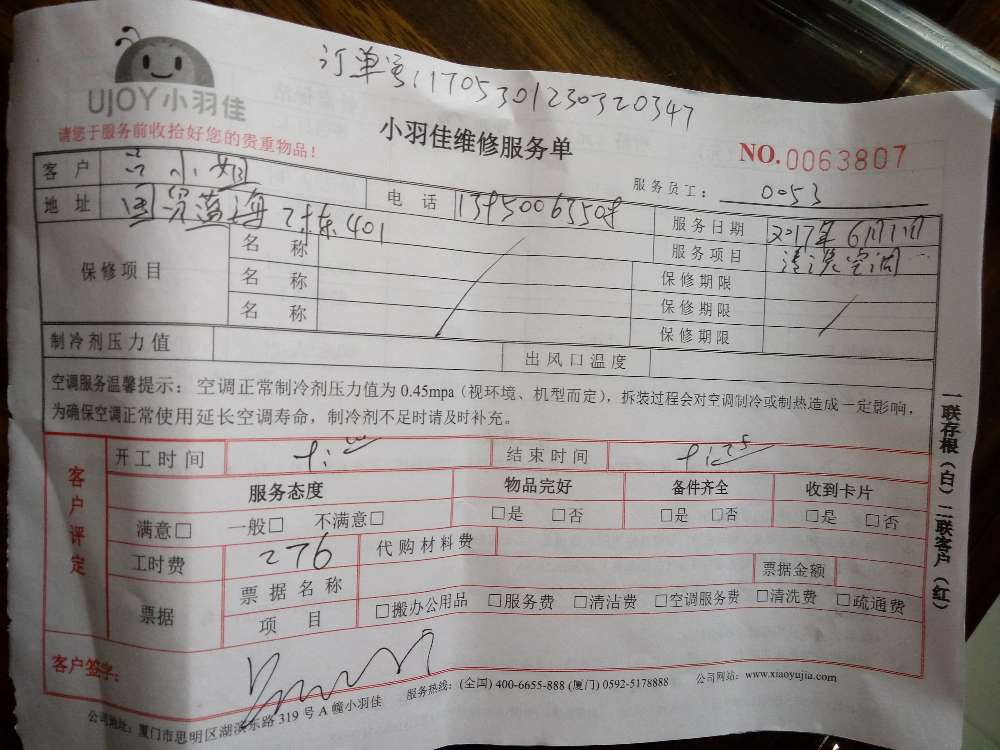 订单号:1705301230320347
UJOY小羽佳
请您于服务前收拾好您的贵重物品!
小羽佳维修服务单
NO.0063807
服务员工: 0053
客户 小姐
地址 国贸蓝海 401
电话 13950063508
服务日期 2017年6月1日
服务项目 清洗空调
保修项目
名称 保修期限
名称 保修期限
名称 保修期限
制冷剂压力值 出风口温度
空调服务温馨提示: 空调正常制冷剂压力值为0.45mpa(视环境、机型而定),拆装过程会对空调制冷或制热造成一定影响,
为确保空调正常使用延长空调寿命,制冷剂不足时请及时补充。
客户评定
开工时间 结束时间
服务态度 物品完好 备件齐全 收到卡片
满意□ 一般□ 不满意□ □是 □否 □是 □否 □是 □否
工时费 276 代购材料费
票据 票据名称 票据金额
项目 □搬办公用品 □服务费 □清洁费 □空调服务费 □清洗费 □疏通费
客户签字:
公司地址:厦门市思明区湖滨东路319号A幢小羽佳 服务热线:(全国) 400-6655-888 (厦门) 0592-5178888 公司网站: www.xiaoyujia.com
一联存根(白)二联客户(红)